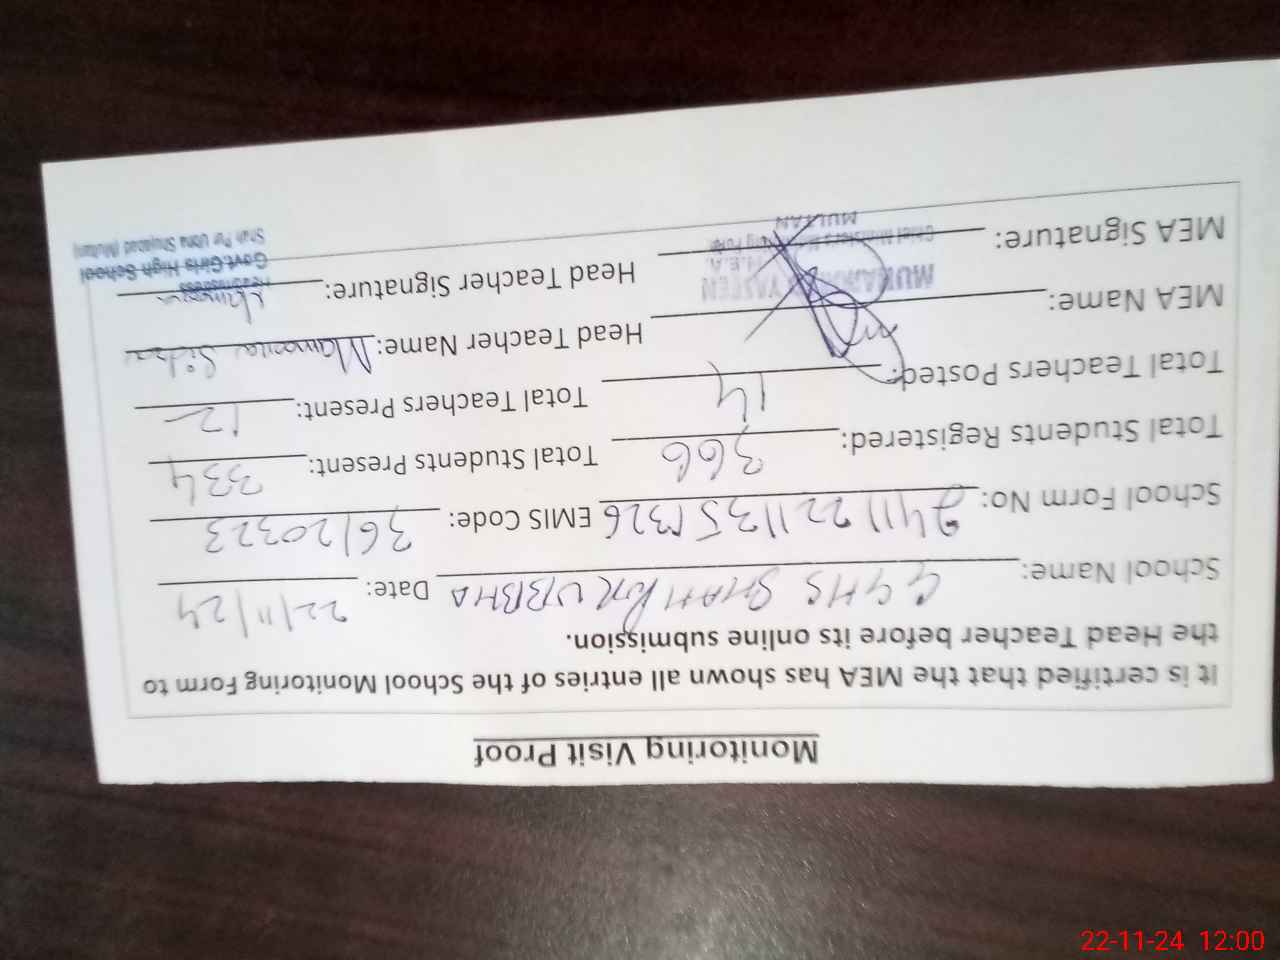 Monitoring Visit Proof
It is certified that the MEA has shown all entries of the School Monitoring Form to
the Head Teacher before its online submission.
School Name: GGHS SHAH PUR UBBHA Date: 22/11/24
School Form No: 24112211351326 EMIS Code: 36120323
Total Students Registered: 366 Total Students Present: 334
Total Teachers Posted: 14 Total Teachers Present: 12
MEA Name: Head Teacher Name: Sidra
MEA Signature: Head Teacher Signature:
YASEEN
M.E.A.
MULTAN
Headmistress
Govt.Girls High School
Shah Pur Ubha Shujabad (Multan)
22-11-24 12:00